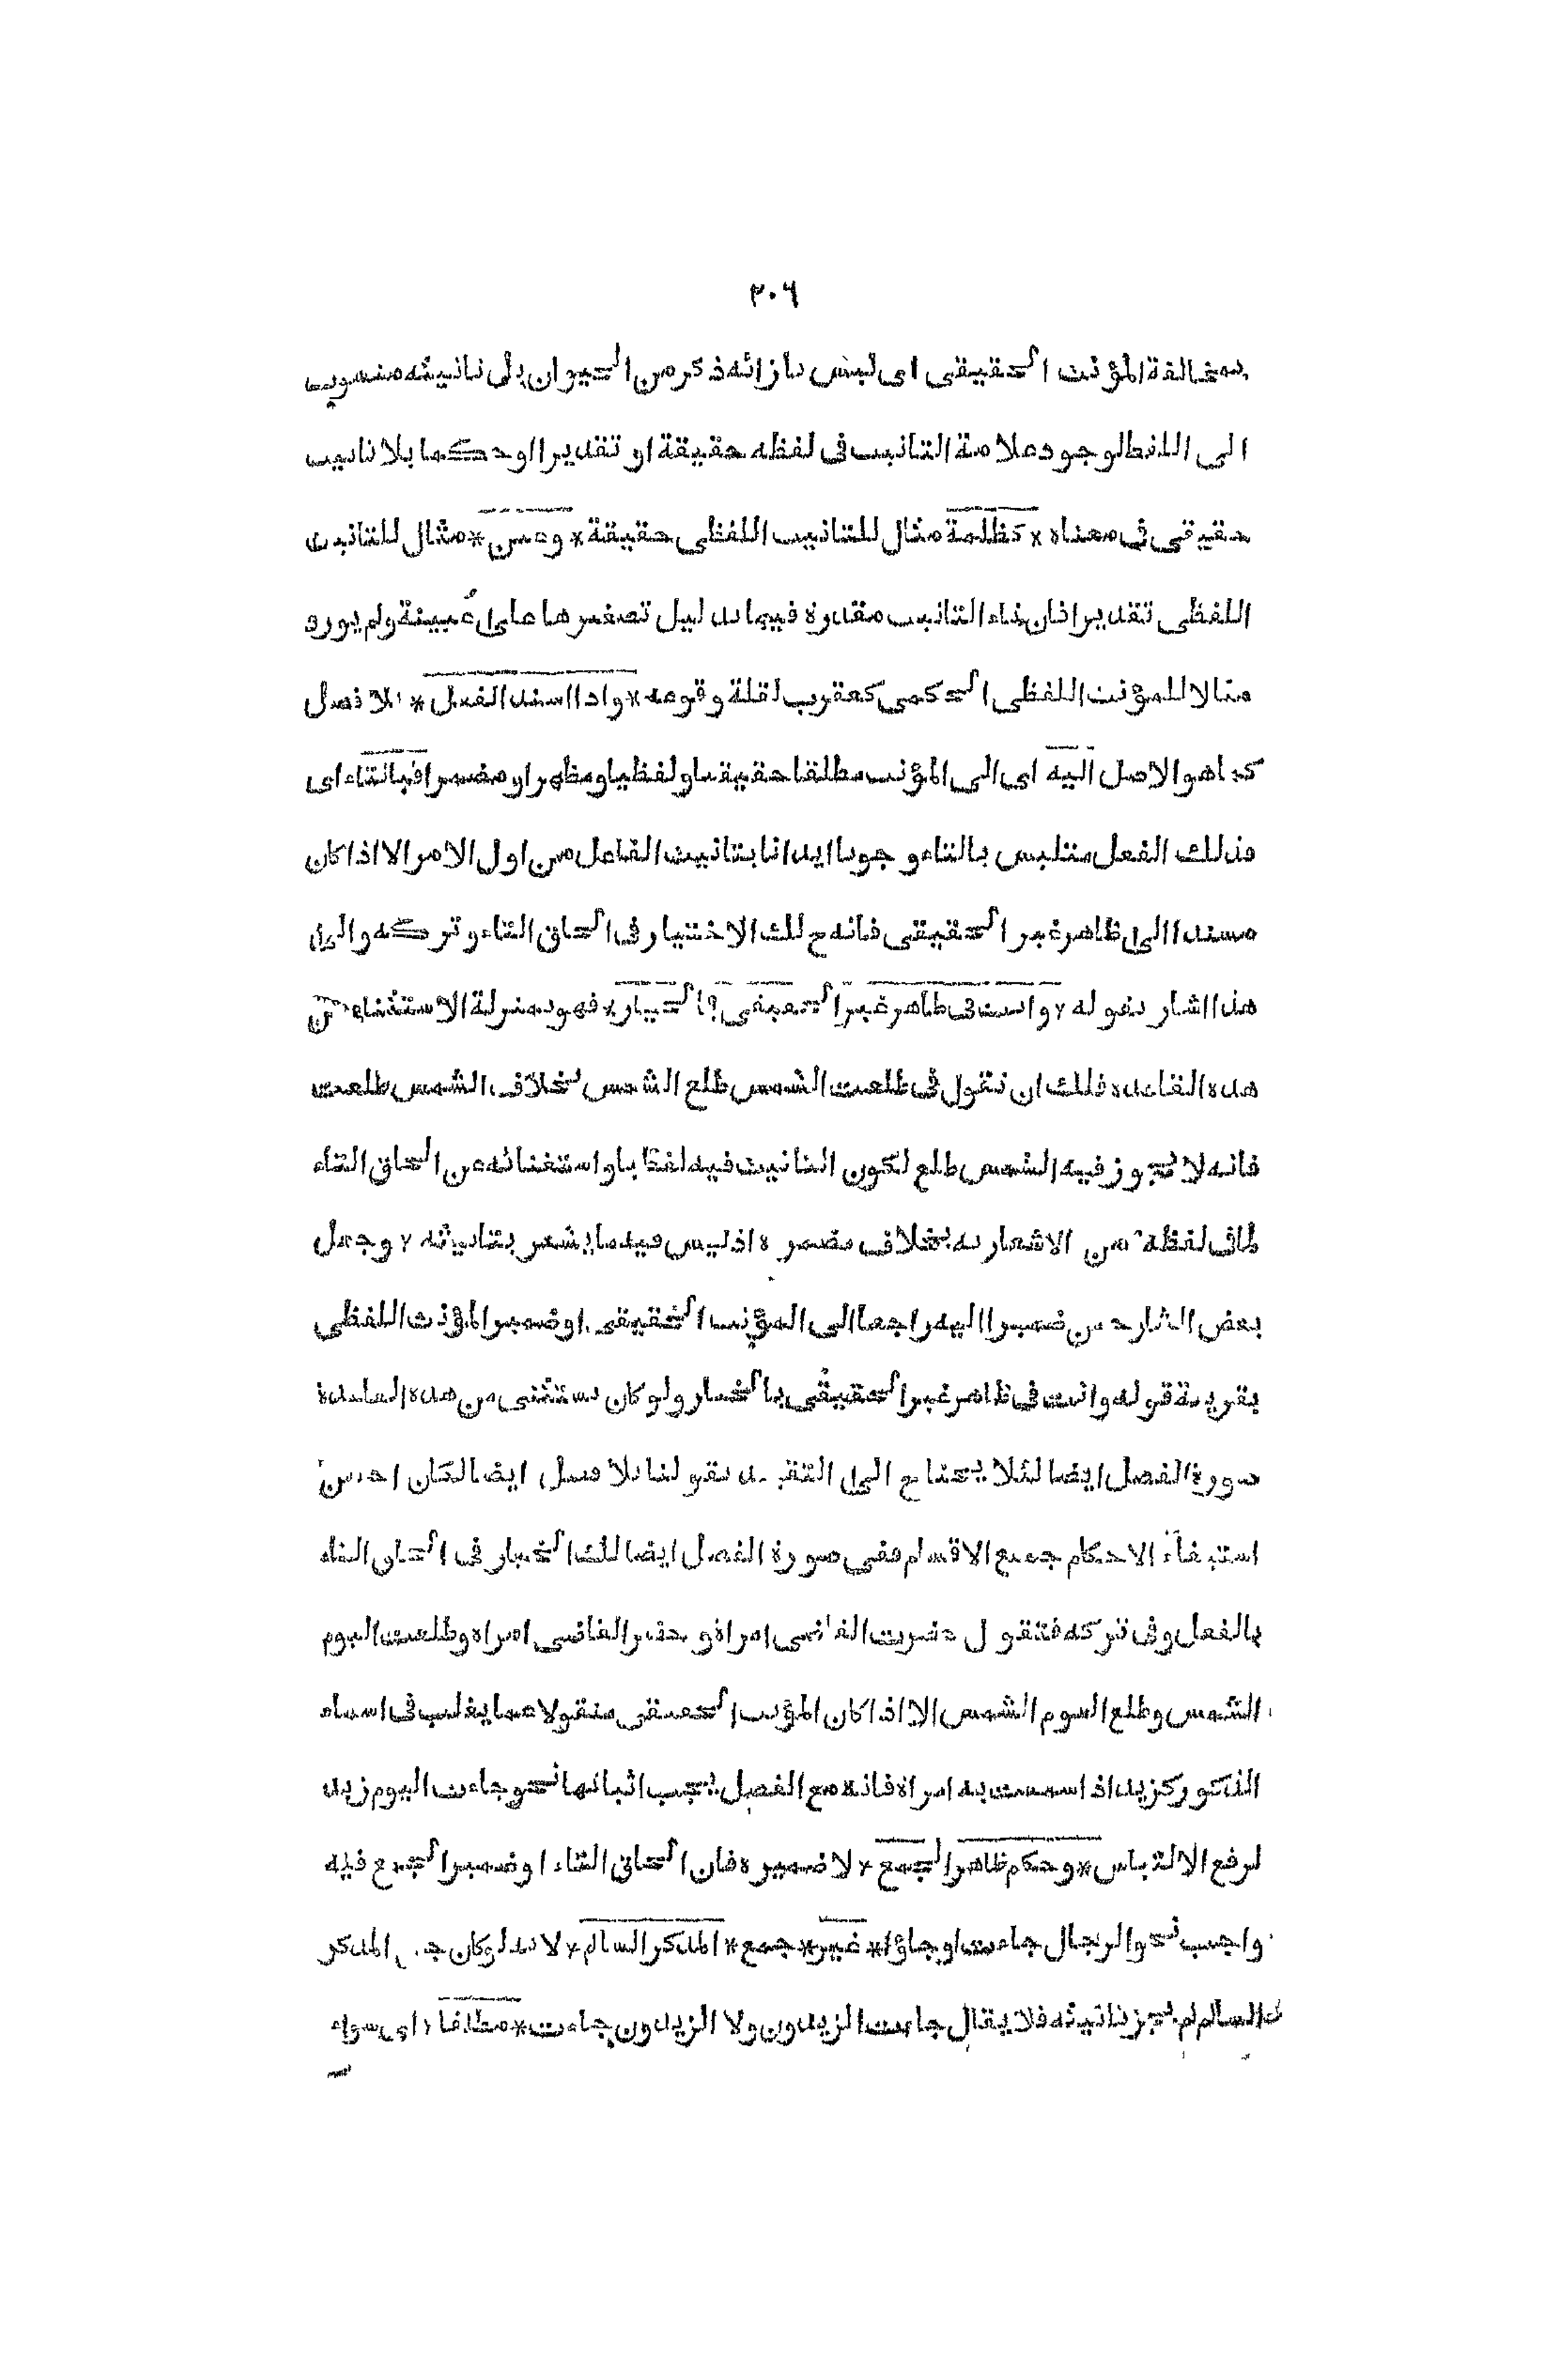 ٢٠٦
بمخالفة المؤنث الحقيقى اى ليس بازائه ذكر من الحيوان بل تانيثه منسوب
الى اللفظ لوجود علامة التانيث فى لفظه حقيقة او تقديرا او حكما بلا تانيث
حقيقى فى معناه * كظلمة مثال للتانيث اللفظى حقيقة * وعين * مثال للتانيث
اللفظى تقديرا فان تاء التانيث مقدرة فيها بدليل تصغيرها على عُيينة ولم يورد
مثالا للمؤنث اللفظى الحكمى كعقرب لقلة وقوعه * واذا اسند الفعل * بلا فصل
كما هو الاصل اليه اى الى المؤنث مطلقا حقيقيا او لفظيا ومظهرا او مضمرا فبالتاء اى
فذلك الفعل متلبس بالتاء وجوبا ايذانا بتانيث الفاعل من اول الامر الا اذا كان
مسندا الى ظاهر غير الحقيقى فانه ح لك الاختيار فى الحاق التاء وتركه والى
هذا اشار بقوله * وانت فى ظاهر غير الحقيقى بالخيار * فهو بمنزلة الاستثناء من
هذه القاعدة فلك ان تقول فى طلعت الشمس طلع الشمس بخلاف الشمس طلعت
فانه لا يجوز فيه الشمس طلع لكون التانيث فيه لفظيا واستغنائه عن الحاق التاء
لما فى لفظه من الاشعار به بخلاف مضمره اذ ليس فيه ما يشعر بتانيثه * وجعل
بعض الشارحين ضمير اليه راجعا الى المؤنث الحقيقى او ضمير المؤنث اللفظى
بقرينة قوله وانت فى ظاهر غير الحقيقى بالخيار ولو كان يستثنى من هذه القاعدة
صورة الفصل ايضا لئلا يحتاج الى التقييد بقولنا بلا فصل ايضا لكان احسن
استيفاء الاحكام جميع الاقسام ففى صورة الفصل ايضا لك الخيار فى الحاق التاء
بالفعل وفى تركه فتقول حضرت القاضى امراة وحضر القاضى امراة وطلعت اليوم
الشمس وطلع اليوم الشمس الا اذا كان المؤنث الحقيقى منقولا عما يغلب فى اسماء
الذكور كزيد اذا سميت به امراة فانه مع الفصل يجب اثباتها نحو جاءت اليوم زيد
لرفع الالتباس * وحكم ظاهر الجمع * لا ضميره فان الحاق التاء او ضمير الجمع فيه
واجب نحو الرجال جاءت او جاؤا * غير * جمع * المذكر السالم * لانه لو كان جمع المذكر
السالم لم يجز تانيثه فلا يقال جاءت الزيدون ولا الزيدون جاءت * مطلقا * اى سواء